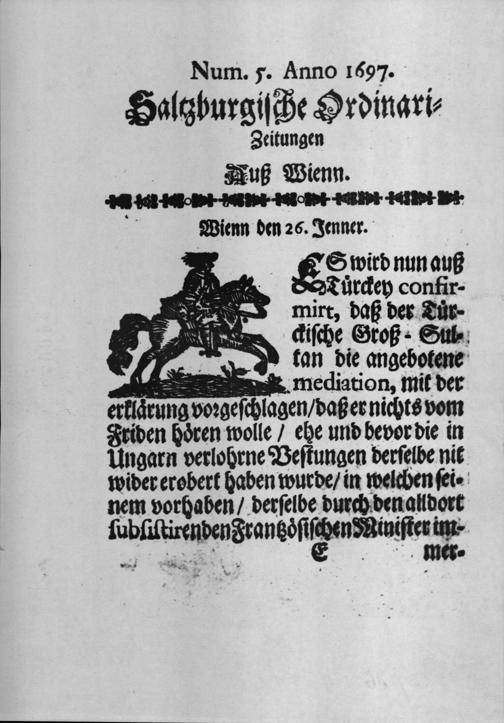 Num. 5. Anno 1697.
Saltzburgische Ordinari-
Zeitungen
Auß Wienn.
Wienn den 26. Jenner.
ES wird nun auß
Türckey confir-
mirt, daß der Tür-
ckische Groß-Sul-
tan die angebotene
mediation, mit der
erklärung vorgeschlagen/ daß er nichts vom
Friden hören wolle / ehe und bevor die in
Ungarn verlohrne Vestungen derselbe nit
wider erobert haben wurde/ in welchen sei-
nem vorhaben / derselbe durch den alldort
subsistirenden Frantzösischen Minister im-
E mer-